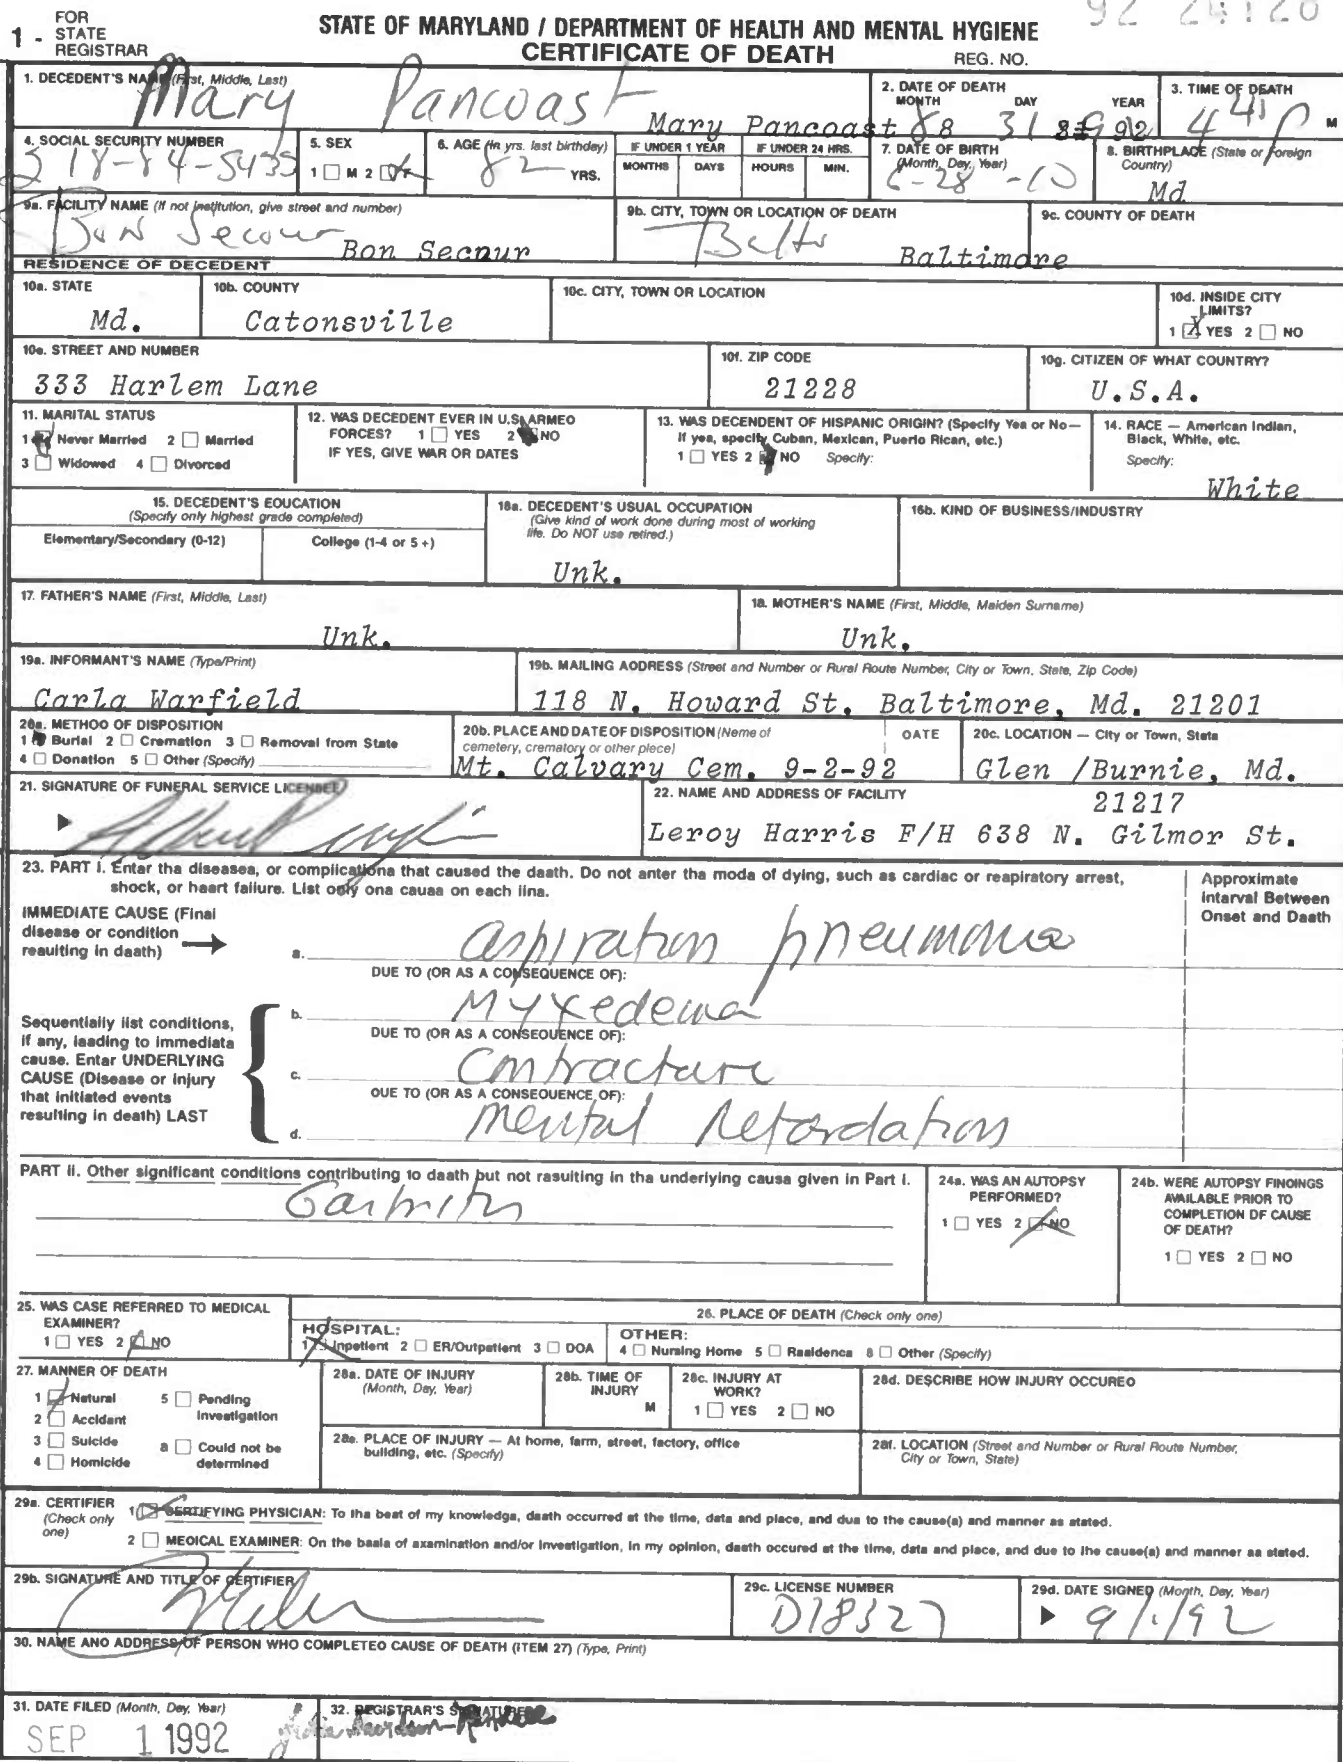 92 24120
1 - FOR STATE REGISTRAR
STATE OF MARYLAND / DEPARTMENT OF HEALTH AND MENTAL HYGIENE
CERTIFICATE OF DEATH
REG. NO.
1. DECEDENT'S NAME (First, Middle, Last)
Mary Pancoast
Mary Pancoast
2. DATE OF DEATH
MONTH DAY YEAR
08 31 92
3. TIME OF DEATH
4 45 P M
4. SOCIAL SECURITY NUMBER
218-84-5435
5. SEX
1 M 2 F
6. AGE (In yrs. last birthday)
82 YRS.
IF UNDER 1 YEAR
MONTHS DAYS
IF UNDER 24 HRS.
HOURS MIN.
7. DATE OF BIRTH
(Month, Day, Year)
6-28-10
8. BIRTHPLACE (State or Foreign Country)
Md
9a. FACILITY NAME (If not institution, give street and number)
Bon Secour
Bon Secnur
9b. CITY, TOWN OR LOCATION OF DEATH
Balto
Baltimore
9c. COUNTY OF DEATH
RESIDENCE OF DECEDENT
10a. STATE
Md.
10b. COUNTY
Catonsville
10c. CITY, TOWN OR LOCATION
10d. INSIDE CITY LIMITS?
1 X YES 2 NO
10e. STREET AND NUMBER
333 Harlem Lane
10f. ZIP CODE
21228
10g. CITIZEN OF WHAT COUNTRY?
U.S.A.
11. MARITAL STATUS
1 Never Married 2 Married
3 Widowed 4 Divorced
12. WAS DECEDENT EVER IN U.S. ARMEO
FORCES? 1 YES 2 NO
IF YES, GIVE WAR OR DATES
13. WAS DECENDENT OF HISPANIC ORIGIN? (Specify Yes or No—
If yes, specify Cuban, Mexican, Puerto Rican, etc.)
1 YES 2 NO Specify:
14. RACE — American Indian,
Black, White, etc.
Specify:
White
15. DECEDENT'S EOUCATION
(Specify only highest grade completed)
Elementary/Secondary (0-12) College (1-4 or 5 +)
16a. DECEDENT'S USUAL OCCUPATION
(Give kind of work done during most of working
life. Do NOT use retired.)
Unk.
16b. KIND OF BUSINESS/INDUSTRY
17. FATHER'S NAME (First, Middle, Last)
Unk.
18. MOTHER'S NAME (First, Middle, Maiden Surname)
Unk.
19a. INFORMANT'S NAME (Type/Print)
Carla Warfield
19b. MAILING AODRESS (Street and Number or Rural Route Number, City or Town, State, Zip Code)
118 N. Howard St. Baltimore, Md. 21201
20a. METHOO OF DISPOSITION
1 Burial 2 Cremation 3 Removal from State
4 Donation 5 Other (Specify)
20b. PLACE AND DATE OF DISPOSITION (Name of
cemetery, crematory or other place) OATE
Mt. Calvary Cem. 9-2-92
20c. LOCATION — City or Town, State
Glen /Burnie, Md.
21. SIGNATURE OF FUNERAL SERVICE LICENSEE
22. NAME AND ADDRESS OF FACILITY
21217
Leroy Harris F/H 638 N. Gilmor St.
23. PART I. Enter tha diseases, or complications that caused the daath. Do not anter tha moda of dying, such as cardiac or respiratory arrest,
shock, or heart failure. List only ona causa on each lina.
Approximate
Intarval Between
Onset and Daath
IMMEDIATE CAUSE (Final
disease or condition
resulting in daath)
a. aspiration pneumonia
DUE TO (OR AS A CONSEQUENCE OF):
b. Myxedema
DUE TO (OR AS A CONSEOUENCE OF):
c. Contracture
OUE TO (OR AS A CONSEOUENCE OF):
d. Mental Retordation
Sequentially list conditions,
if any, laading to immediata
cause. Entar UNDERLYING
CAUSE (Disease or injury
that initiated events
resulting in death) LAST
PART II. Other significant conditions contributing to daath but not rasulting in tha underlying causa given in Part I.
24a. WAS AN AUTOPSY PERFORMED?
1 YES 2 NO
24b. WERE AUTOPSY FINOINGS
AVAILABLE PRIOR TO
COMPLETION OF CAUSE
OF DEATH?
1 YES 2 NO
25. WAS CASE REFERRED TO MEDICAL
EXAMINER?
1 YES 2 NO
26. PLACE OF DEATH (Check only one)
HOSPITAL:
1 Inpatient 2 ER/Outpatient 3 DOA
OTHER:
4 Nursing Home 5 Rasidence 8 Other (Specify)
27. MANNER OF DEATH
1 Natural 5 Pending Investigation
2 Accidant
3 Suicide 8 Could not be determined
4 Homicide
28a. DATE OF INJURY
(Month, Day, Year)
28b. TIME OF INJURY
M
28c. INJURY AT WORK?
1 YES 2 NO
28d. DESCRIBE HOW INJURY OCCUREO
28e. PLACE OF INJURY — At home, farm, street, factory, office
building, etc. (Specify)
28f. LOCATION (Street and Number or Rural Route Number,
City or Town, State)
29a. CERTIFIER
(Check only one)
1 CERTIFYING PHYSICIAN: To tha best of my knowledga, daath occurred at the time, data and place, and dua to the cause(a) and manner as stated.
2 MEOICAL EXAMINER: On the basia of axamination and/or investigation, in my opinion, daath occured at the time, data and place, and due to the cause(a) and manner aa stated.
29b. SIGNATURE AND TITLE OF CERTIFIER
29c. LICENSE NUMBER
D18327
29d. DATE SIGNED (Month, Day, Year)
9/1/92
30. NAME ANO ADDRESS OF PERSON WHO COMPLETEO CAUSE OF DEATH (ITEM 27) (Type, Print)
31. DATE FILED (Month, Day, Year)
SEP 1 1992
32. REGISTRAR'S SIGNATURE